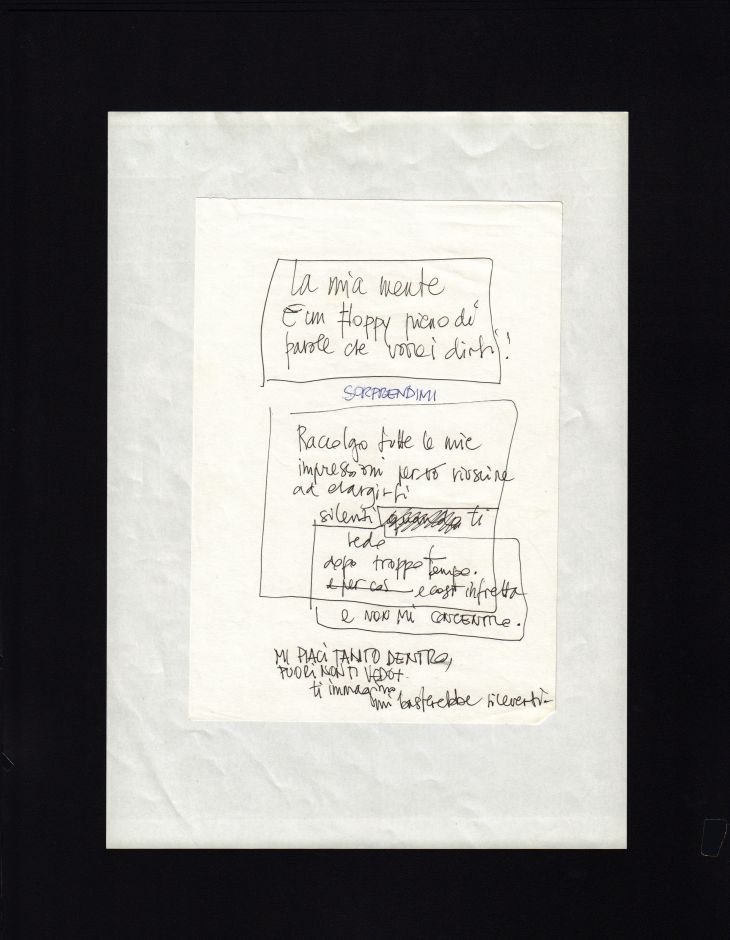 La mia mente
È un floppy pieno di
parole che vorrei dirti!
SORPRENDIMI
Raccolgo tutte le mie
impressioni per riuscire
ad elargirti
silenti ti
vedo
dopo troppo tempo.
e per cos e così in fretta
e NON MI CONCENTRO.
MI PIACI TANTO DENTRO,
FUORI NON TI VEDO
ti immagino
mi basterebbe riceverti